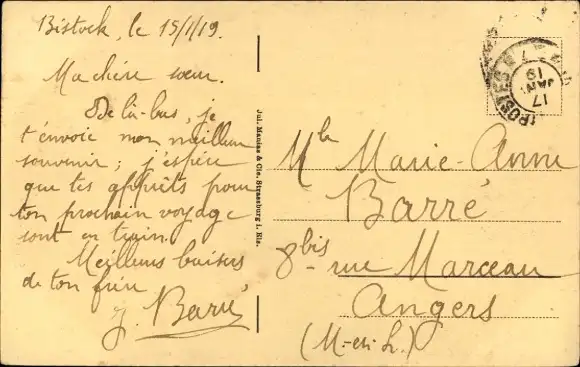 Bistock, le 15/1/19.
Ma chère sœur.
De là-bas, je
t'envoie mon meilleur
souvenir; j'espère
que tes apprêts pour
ton prochain voyage
sont en train.
Meilleurs baisers
de ton frère
J. Barré
Jul. Manias & Cie. Strassburg i. Els.
Mlle Marie-Anne
Barré
8bis rue Marceau
Angers
(M.-et-L.)
POSTES
17
JANV
19